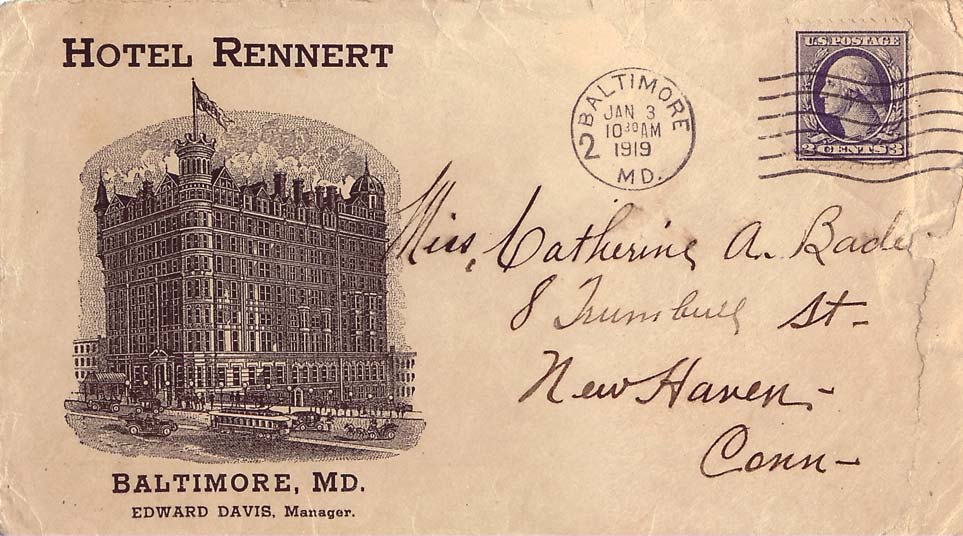 HOTEL RENNERT
BALTIMORE, MD.
EDWARD DAVIS, Manager.
BALTIMORE
JAN 3
10 30 AM
1919
2
MD.
U.S. POSTAGE
3 CENTS 3
Miss, Catherine A. Bader
8 Trumbull St-
New Haven-
Conn-